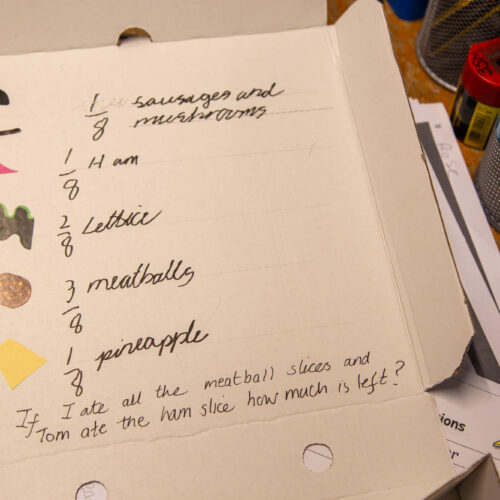 1/8 sausages and
mushrooms
1/8 Ham
2/8 Lettice
3/8 meatballs
1/8 pineapple
If I ate all the meatball slices and
Tom ate the ham slice how much is left?
Rose
ions